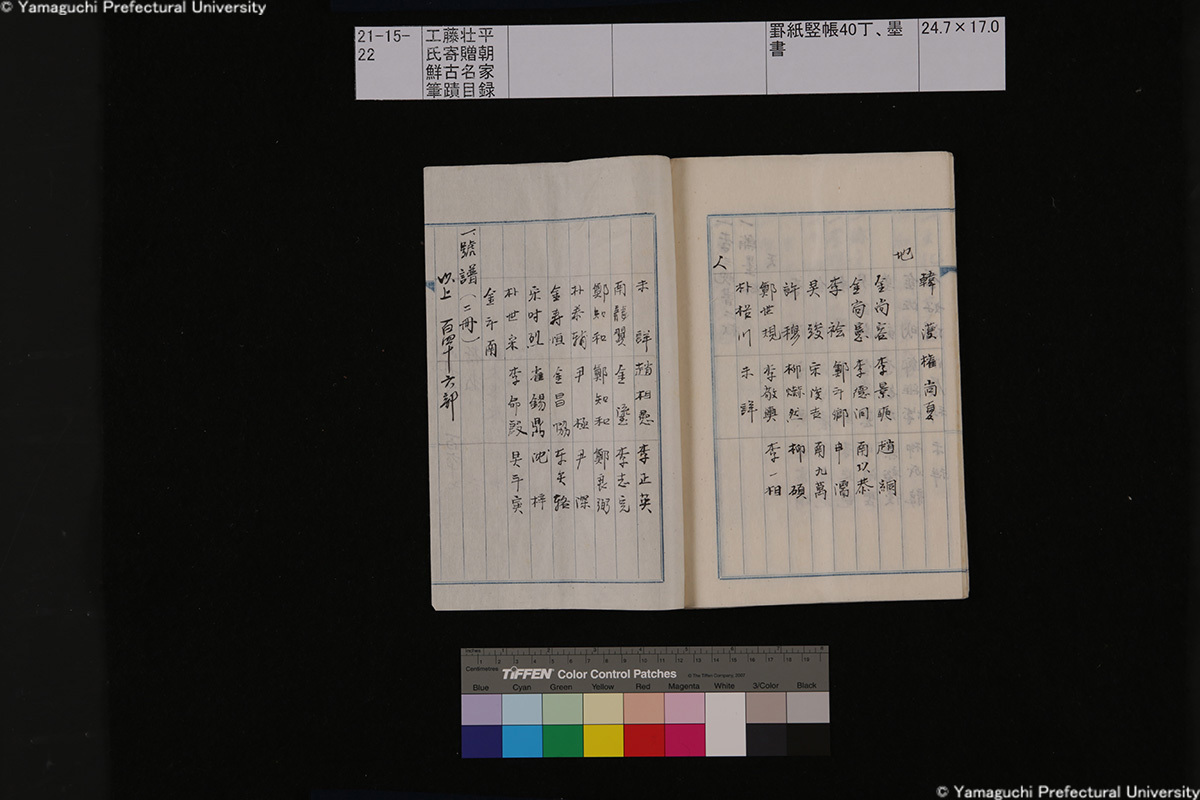 © Yamaguchi Prefectural University
21-15-
22
工藤壮平
氏寄贈朝
鮮古名家
筆蹟目録
罫紙竪帳40丁、墨
書
24.7×17.0
韓濩 権尚夏
地
金尚容 李景奭 趙絅
金尚憲 李德泂 南以恭
李 鄭斗卿 申濡
吴竣 宋浚吉 南九萬
許穆 柳 然 柳碩
鄭世規 李敬輿 李一相
人
朴 川 未詳
未詳 趙相愚 李正英
南龍翼 金 李志完
鄭知和 鄭知和 鄭良弼
朴泰輔 尹 極 尹深
金寿恒 金昌協
宋时烈 崔錫鼎 沈梓
朴世采 李命殷 吴斗寅
金斗南
一號譜(二冊)
以上 百四十六部
inches
Centimetres
TIFFEN Color Control Patches
© The Tiffen Company, 2007
Blue Cyan Green Yellow Red Magenta White 3/Color Black
© Yamaguchi Prefectural University